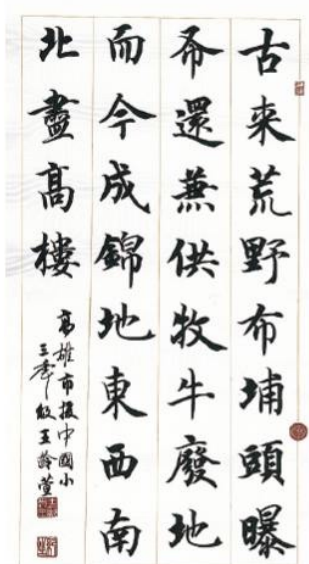 古來荒野布埔頭曝
布還兼供牧牛廢地
而今成錦地東西南
北盡高樓
高雄市援中國小
三年級王齡萱